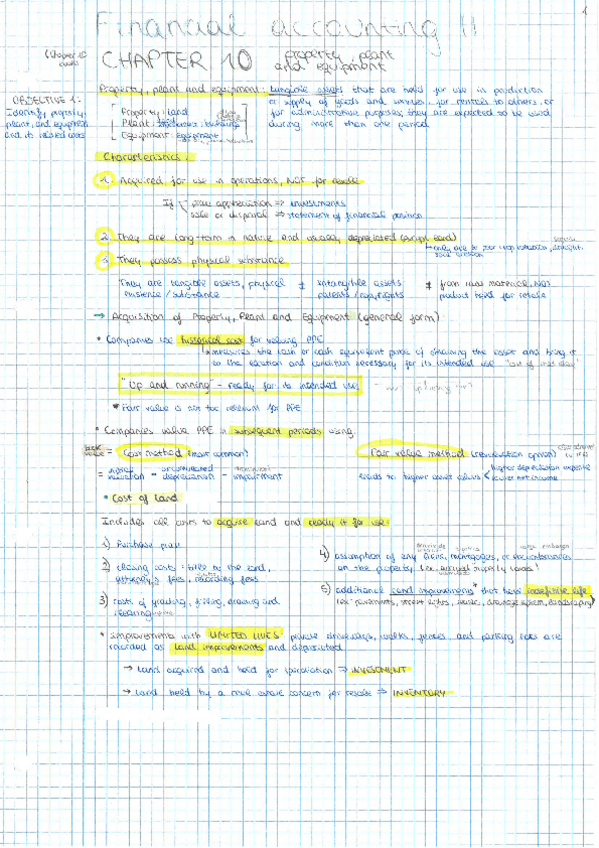 Financial accounting II
1
CHAPTER 10 property, plant and equipment
OBJECTIVE 1:
identify property, plant, and equipment and its related costs
Property, plant and equipment: tangible assets that are held for use in production
or supply of goods and services, for rentals to others, or
for administrative purposes; they are expected to be used
during more than one period
Property: Land
Plant: buildings
Equipment: equipment
Characteristics:
1. Acquired for use in operations, NOT for resale
If price appreciation ⇒ investments
sale or disposal ⇒ statement of financial position
2. They are long-term in nature and usually depreciated (except land)
3. They possess physical substance
They are tangible assets, physical existence / substance
≠ intangible assets patents / copyrights
≠ from raw material, NOT product held for resale
→ Acquisition of Property, Plant and Equipment (general form)
• Companies use historical cost for valuing PPE
measures the cash or cash equivalent price of obtaining the asset and bring it
to the location and condition necessary for its intended use
"Up and running" - ready for its intended use
* Fair value is not too relevant for PPE
• Companies value PPE in subsequent periods using:
= Cost method (most common)
Fair value method (revaluation option)
leads to higher asset values
higher depreciation expense
lower net income
• Cost of land
Includes all costs to acquire land and ready it for use:
1) Purchase price
2) closing costs: title to the land, attorney's fees, recording fees
3) costs of grading, filling, draining and clearing
4) assumption of any liens, mortgages, or encumbrances
on the property
5) additional land improvements * that have indefinite life
• Improvements with LIMITED LIVES: private driveways, walks, fences, and parking lots are
recorded as Land improvements and depreciated
→ Land acquired and held for speculation ⇒ INVESTMENT
→ Land held by a real estate concern for resale ⇒ INVENTORY